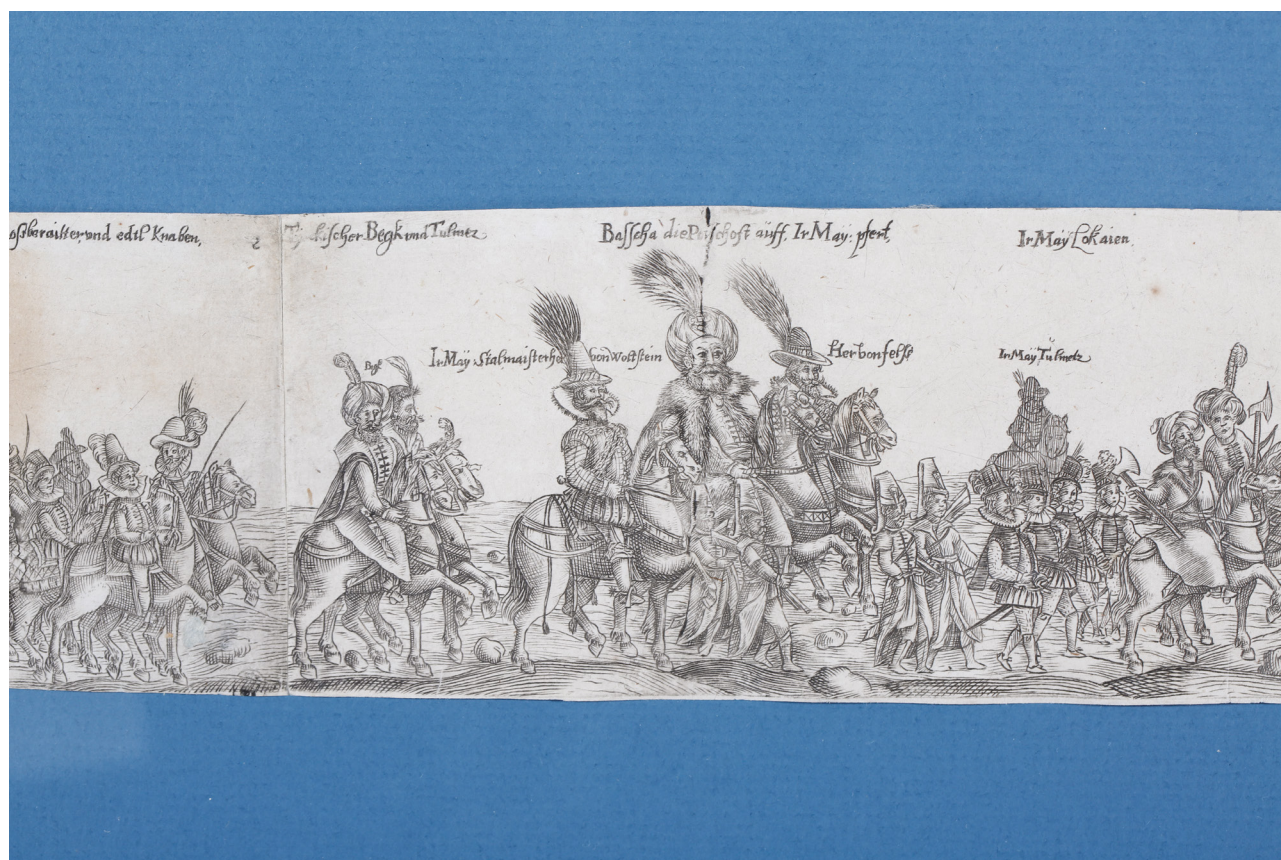 oßberaitter, vnd edtl Knaben,
kischer Begk vnd Tulmetz
Basscha die auff Ir May: pfert,
Ir Maÿ Lokaien
Begk
Ir Maÿ: Stalmaister von Wolfstein
Her von felss
Ir Maÿ Tulmetz